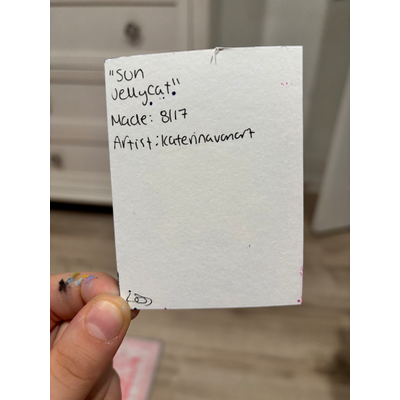 "Sun
Jellycat"
Made: 8/17
Artist: Katerinavanart